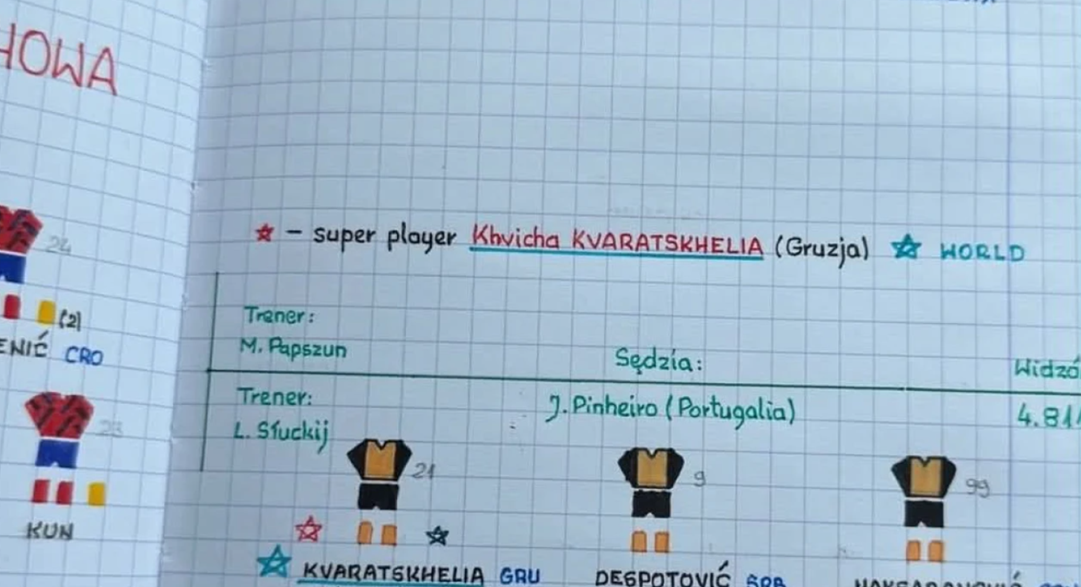 HOWA
24
☆ – super player Khvicha KVARATSKHELIA (Gruzja) ☆ WORLD
(2)
ENIĆ CRO
Trener:
M. Papszun
Sędzia:
Widzó
Trener:
L. Słuckij
J. Pinheiro (Portugalia)
4.814
23
KUN
21
9
99
KVARATSKHELIA GRU
DESPOTOVIĆ SRB